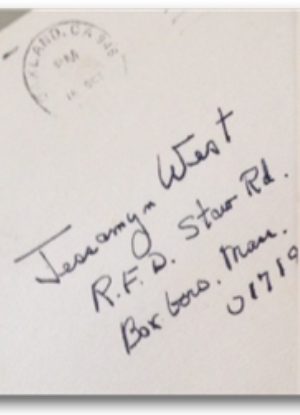 LAND, CA 946
PM
OCT
Jessamyn West
R.F.D. Stow Rd.
Boxboro. Mass.
01719